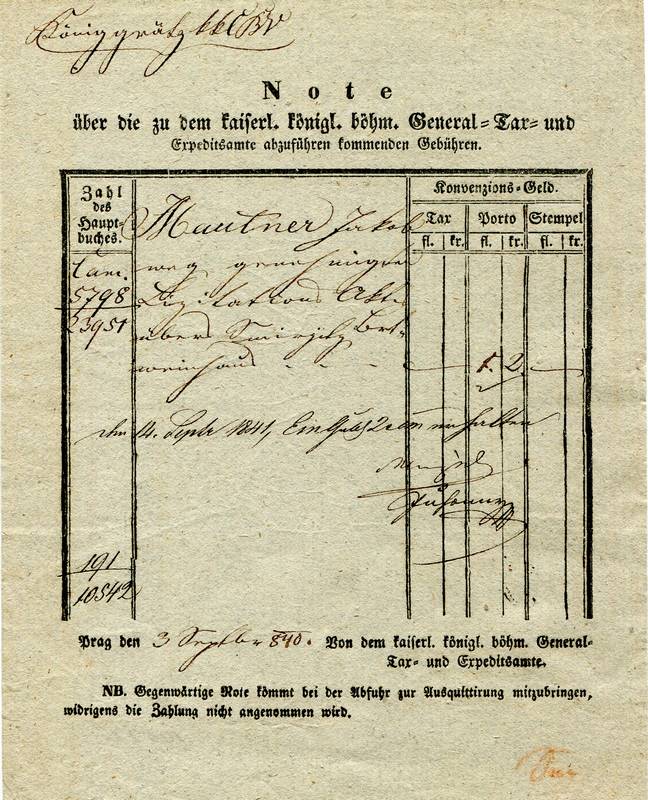 Königgrätz
Note
über die zu dem kaiserl. königl. böhm. General-Tax- und
Expeditsamte abzuführen kommenden Gebühren.
Zahl
des
Haupt-
buches.
Konvenzions-Geld.
Tax Porto Stempel
fl. kr. fl. kr. fl. kr.
Mautner Jakob
weg
5798 Lizitations Akts
23951 über Smirschitz
weinhaus 1. 2.
den 14. Septr 1841, erhalten
191
10542
Prag den 3 Septber 840. Von dem kaiserl. königl. böhm. General-
Tax- und Expeditsamte.
NB. Gegenwärtige Note kömmt bei der Abfuhr zur Ausquittirung mitzubringen,
widrigens die Zahlung nicht angenommen wird.